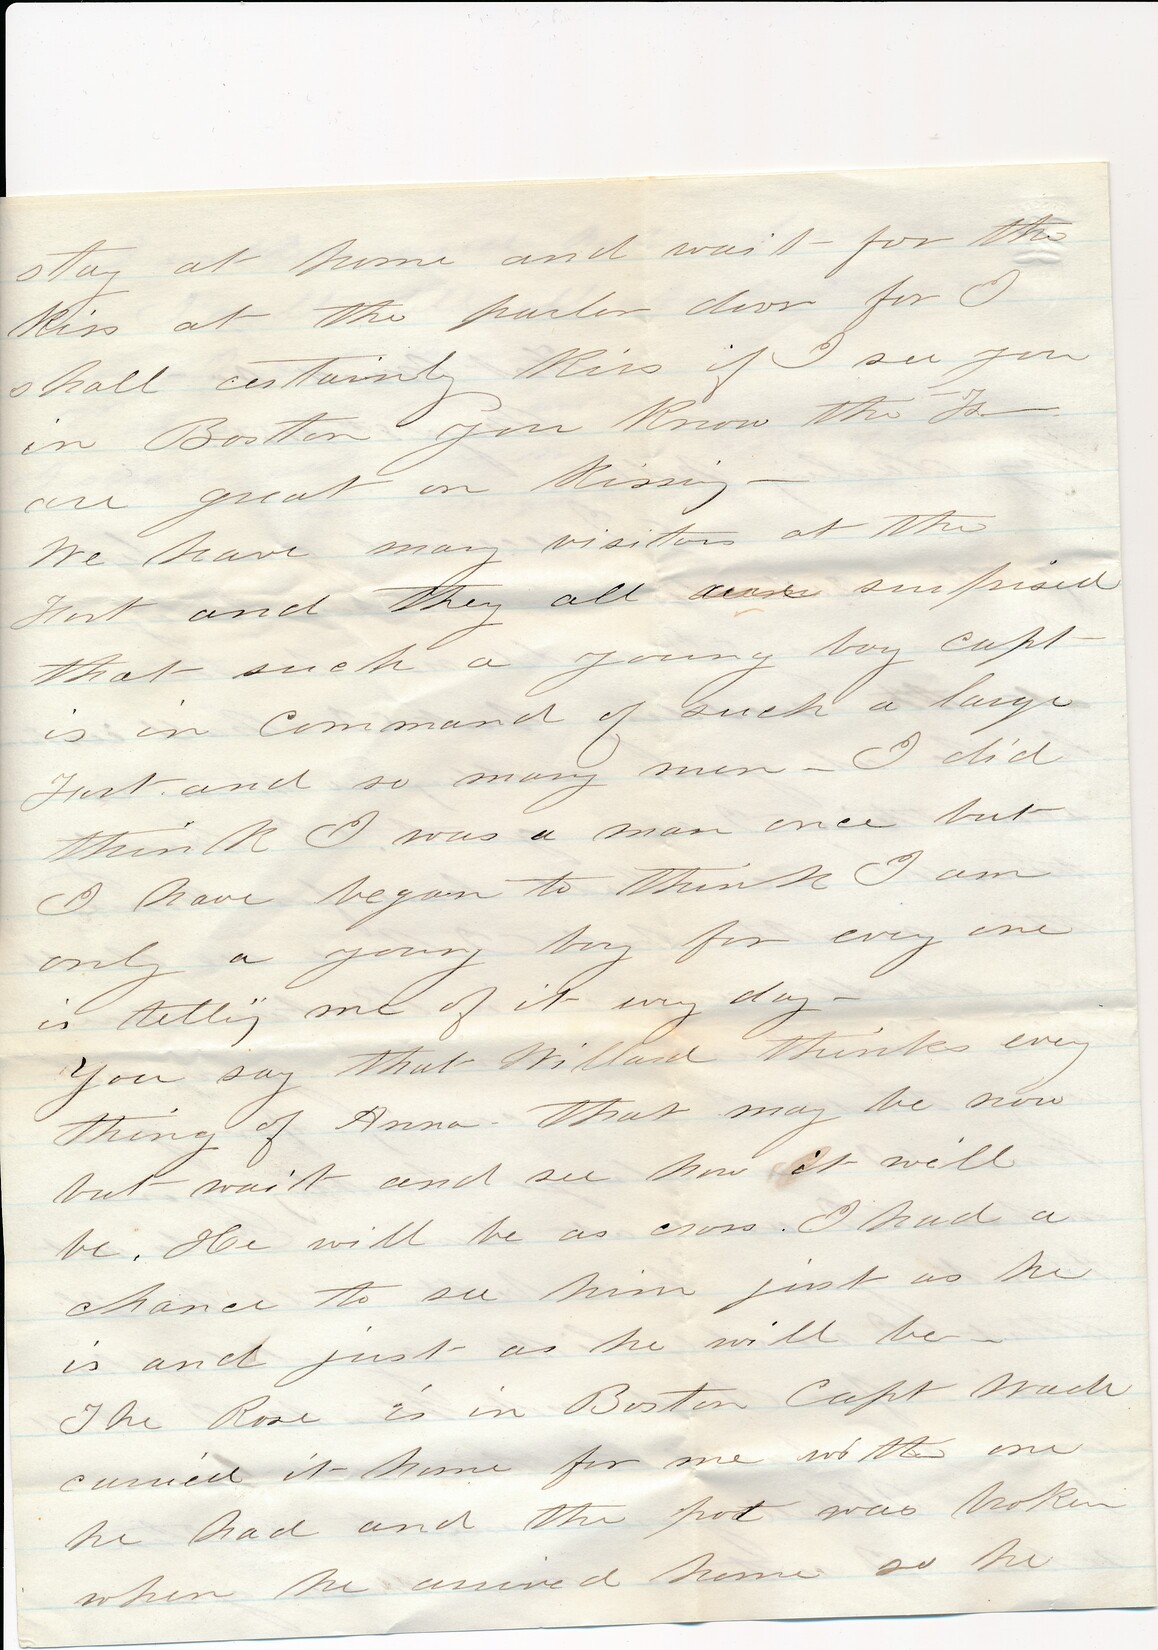 stay at home and wait for the
kiss at the parlor door for I
shall certainly kiss if I see you
in Boston You know the Fs
are great on kissing -
We have many visitors at the
Fort and they all are surprised
that such a young boy capt
is in command of such a large
Fort and so many men - I did
think I was a man once but
I have began to think I am
only a young boy for every one
is telling me of it every day -
You say that Willard thinks every
thing of Anna - that may be now
but wait and see how it will
be. He will be as cross. I had a
chance to see him just as he
is and just as he will be -
The Rose is in Boston Capt Wade
carried it home for me with one
he had and the pot was broken
when he arrived home so he